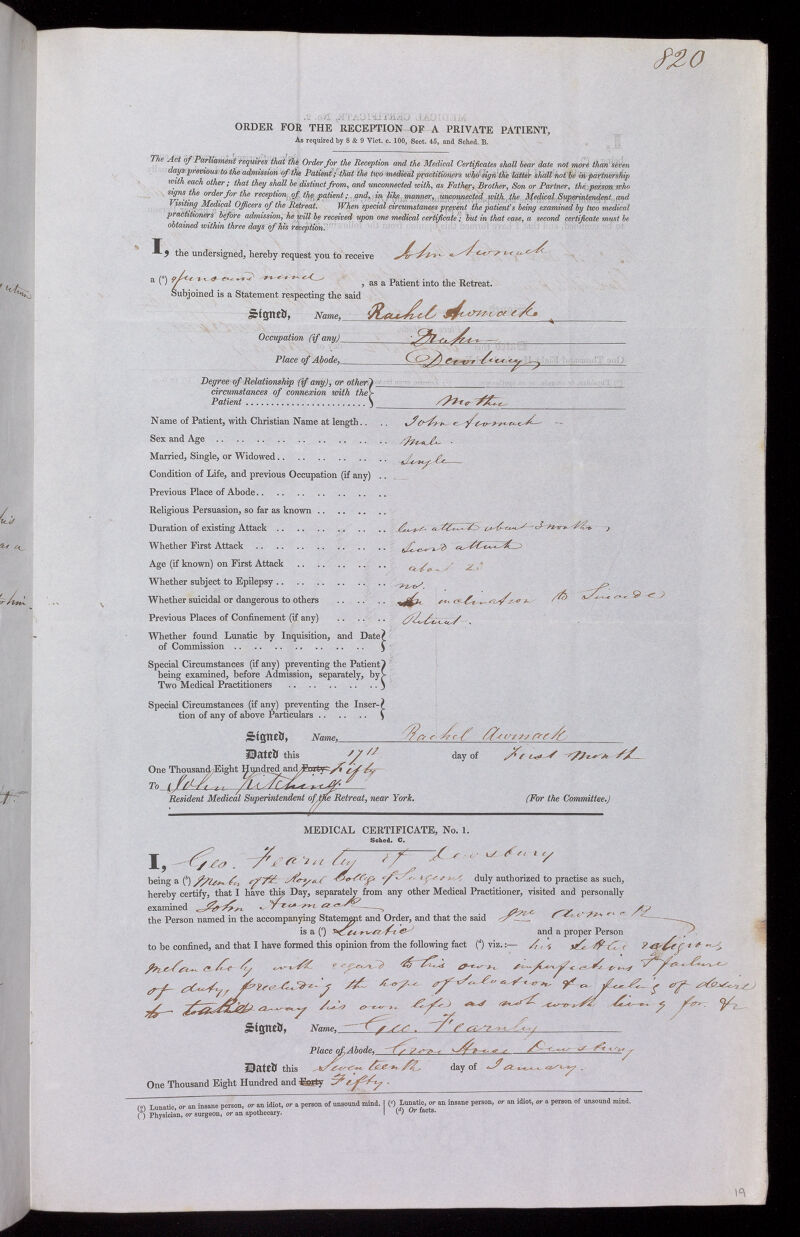 820
ORDER FOR THE RECEPTION OF A PRIVATE PATIENT,
As required by 8 & 9 Vict. c. 100, Sect. 45, and Sched. B.
The Act of Parliament requires that the Order for the Reception and the Medical Certificates shall bear date not more than seven
days previous to the admission of the Patient; that the two medical practitioners who sign the latter shall not be in partnership
with each other; that they shall be distinct from, and unconnected with, as Father, Brother, Son or Partner, the person who
signs the order for the reception of the patient; and, in like manner, unconnected with the Medical Superintendent and
Visiting Medical Officers of the Retreat. When special circumstances prevent the patient's being examined by two medical
practitioners before admission, he will be received upon one medical certificate; but in that case, a second certificate must be
obtained within three days of his reception.
I, the undersigned, hereby request you to receive John Awmack
a (ᵃ) of unsound mind, as a Patient into the Retreat.
Subjoined is a Statement respecting the said
Signed, Name, Rachel Awmack
Occupation (if any) Draper
Place of Abode, Dewsbury
Degree of Relationship (if any), or other
circumstances of connexion with the
Patient ........................ Mother
Name of Patient, with Christian Name at length.. .. John Awmack
Sex and Age .. .. .. .. .. .. .. .. .. Male.
Married, Single, or Widowed.. .. .. .. .. .. Single
Condition of Life, and previous Occupation (if any) ..
Previous Place of Abode.. .. .. .. .. .. ..
Religious Persuasion, so far as known .. .. .. ..
Duration of existing Attack .. .. .. .. .. .. last attack about 3 months
Whether First Attack .. .. .. .. .. .. .. second attack
Age (if known) on First Attack .. .. .. .. .. about
Whether subject to Epilepsy .. .. .. .. .. .. no.
Whether suicidal or dangerous to others .. .. .. An inclination to Suicide
Previous Places of Confinement (if any) .. .. .. Retreat.
Whether found Lunatic by Inquisition, and Date
of Commission .. .. .. .. .. .. ..
Special Circumstances (if any) preventing the Patient
being examined, before Admission, separately, by
Two Medical Practitioners .. .. .. .. ..
Special Circumstances (if any) preventing the Inser-
tion of any of above Particulars .. .. .. ..
Signed, Name, Rachel Awmack
Dated this 17th day of First Month
One Thousand Eight Hundred and Forty Fifty
To John Kitching
Resident Medical Superintendent of the Retreat, near York. (For the Committee.)
MEDICAL CERTIFICATE, No. 1.
Sched. C.
I, Geo. Fearnley of Dewsbury
being a (ᵇ) Member of the Royal College of Surgeons duly authorized to practise as such,
hereby certify, that I have this Day, separately from any other Medical Practitioner, visited and personally
examined John Awmack
the Person named in the accompanying Statement and Order, and that the said Jno Awmack
is a (ᶜ) Lunatic and a proper Person
to be confined, and that I have formed this opinion from the following fact (ᵈ) viz.:— his settled religious
melancholy with regard to his own imperfections & failure
of duty, precluding the hope of salvation & a feeling of desire
to take away his own life as not worth living for. &c
Signed, Name, Geo. Fearnley
Place of Abode, Grove House Dewsbury
Dated this Seventeenth day of January.
One Thousand Eight Hundred and Forty Fifty.
(ᵃ) Lunatic, or an insane person, or an idiot, or a person of unsound mind.
(ᵇ) Physician, or surgeon, or an apothecary.
(ᶜ) Lunatic, or an insane person, or an idiot, or a person of unsound mind.
(ᵈ) Or facts.
19